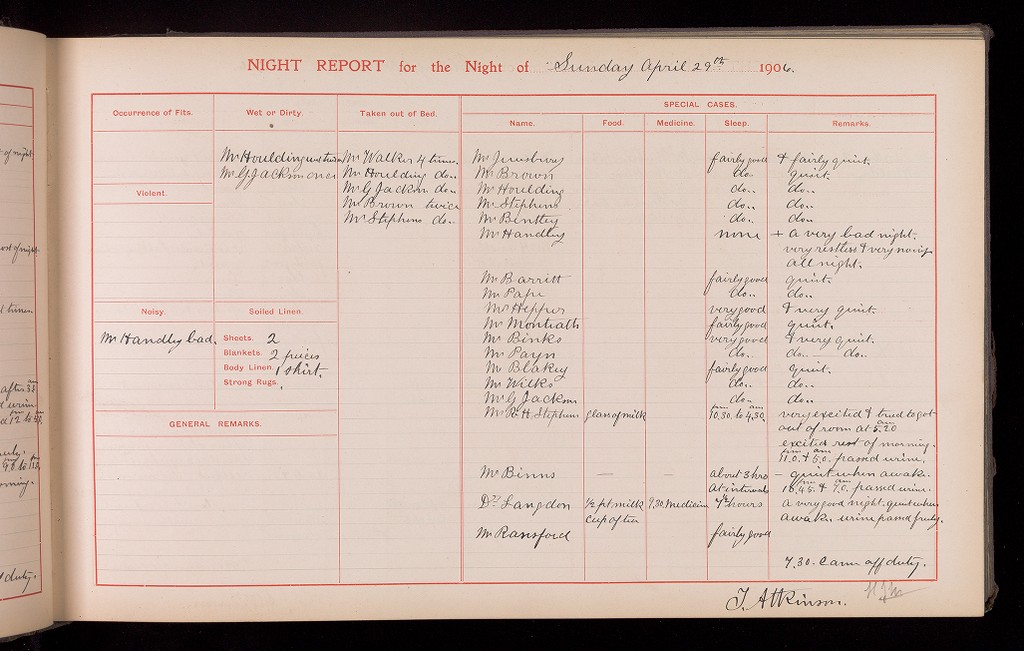 NIGHT REPORT for the Night of Sunday April 29th 1906.
Occurrence of Fits. Wet or Dirty. Taken out of Bed. SPECIAL CASES.
Name. Food. Medicine. Sleep. Remarks.
Mr Houlding wet twice Mr Walker 4 times. Mr Jewsbury fairly good & fairly quiet.
Mr G Jackson once Mr Houlding do.. Mr Brown do.. quiet.
Violent. Mr G Jackson do.. Mr Houlding do.. do..
Mr Brown twice Mr Stephens do.. do..
Mr Stephens do.. Mr Binttey do.. do..
Mr Handley none + a very bad night.
very restless & very noisy
all night.
Mr Barritt fairly good quiet.
Mr Pape do.. do..
Noisy. Soiled Linen. Mr Hepper very good & very quiet.
Mr Monteath fairly good quiet.
Mr Handley bad. Sheets. 2 Mr Binks very good & very quiet.
Blankets. 2 pieces Mr Payn do.. do.. — do..
Body Linen. 1 shirt. Mr Blakey fairly good quiet.
Strong Rugs. Mr Wilks do.. do..
Mr G Jackson do.. do..
GENERAL REMARKS. Mr R H Stephens glass of milk 10.30 pm to 4.30 am very excited & tried to get
out of room at 5.20 am
excited rest of morning.
11.0 pm & 5.0 am passed urine.
Mr Binns — — about 3 hrs — quiet when awake.
at intervals 10.45 pm & 7.0 am passed urine.
Dr Langdon ½ pt milk 9.30. Medicine 7½ hours a very good night. quiet when
cup of tea awake. urine passed freely.
Mr Ransford fairly good
7.30. Came off duty.
T. Atkinson.
of night.
after 3.5 am
urine
12 to 5.0
9.0 to 11.5
duty.